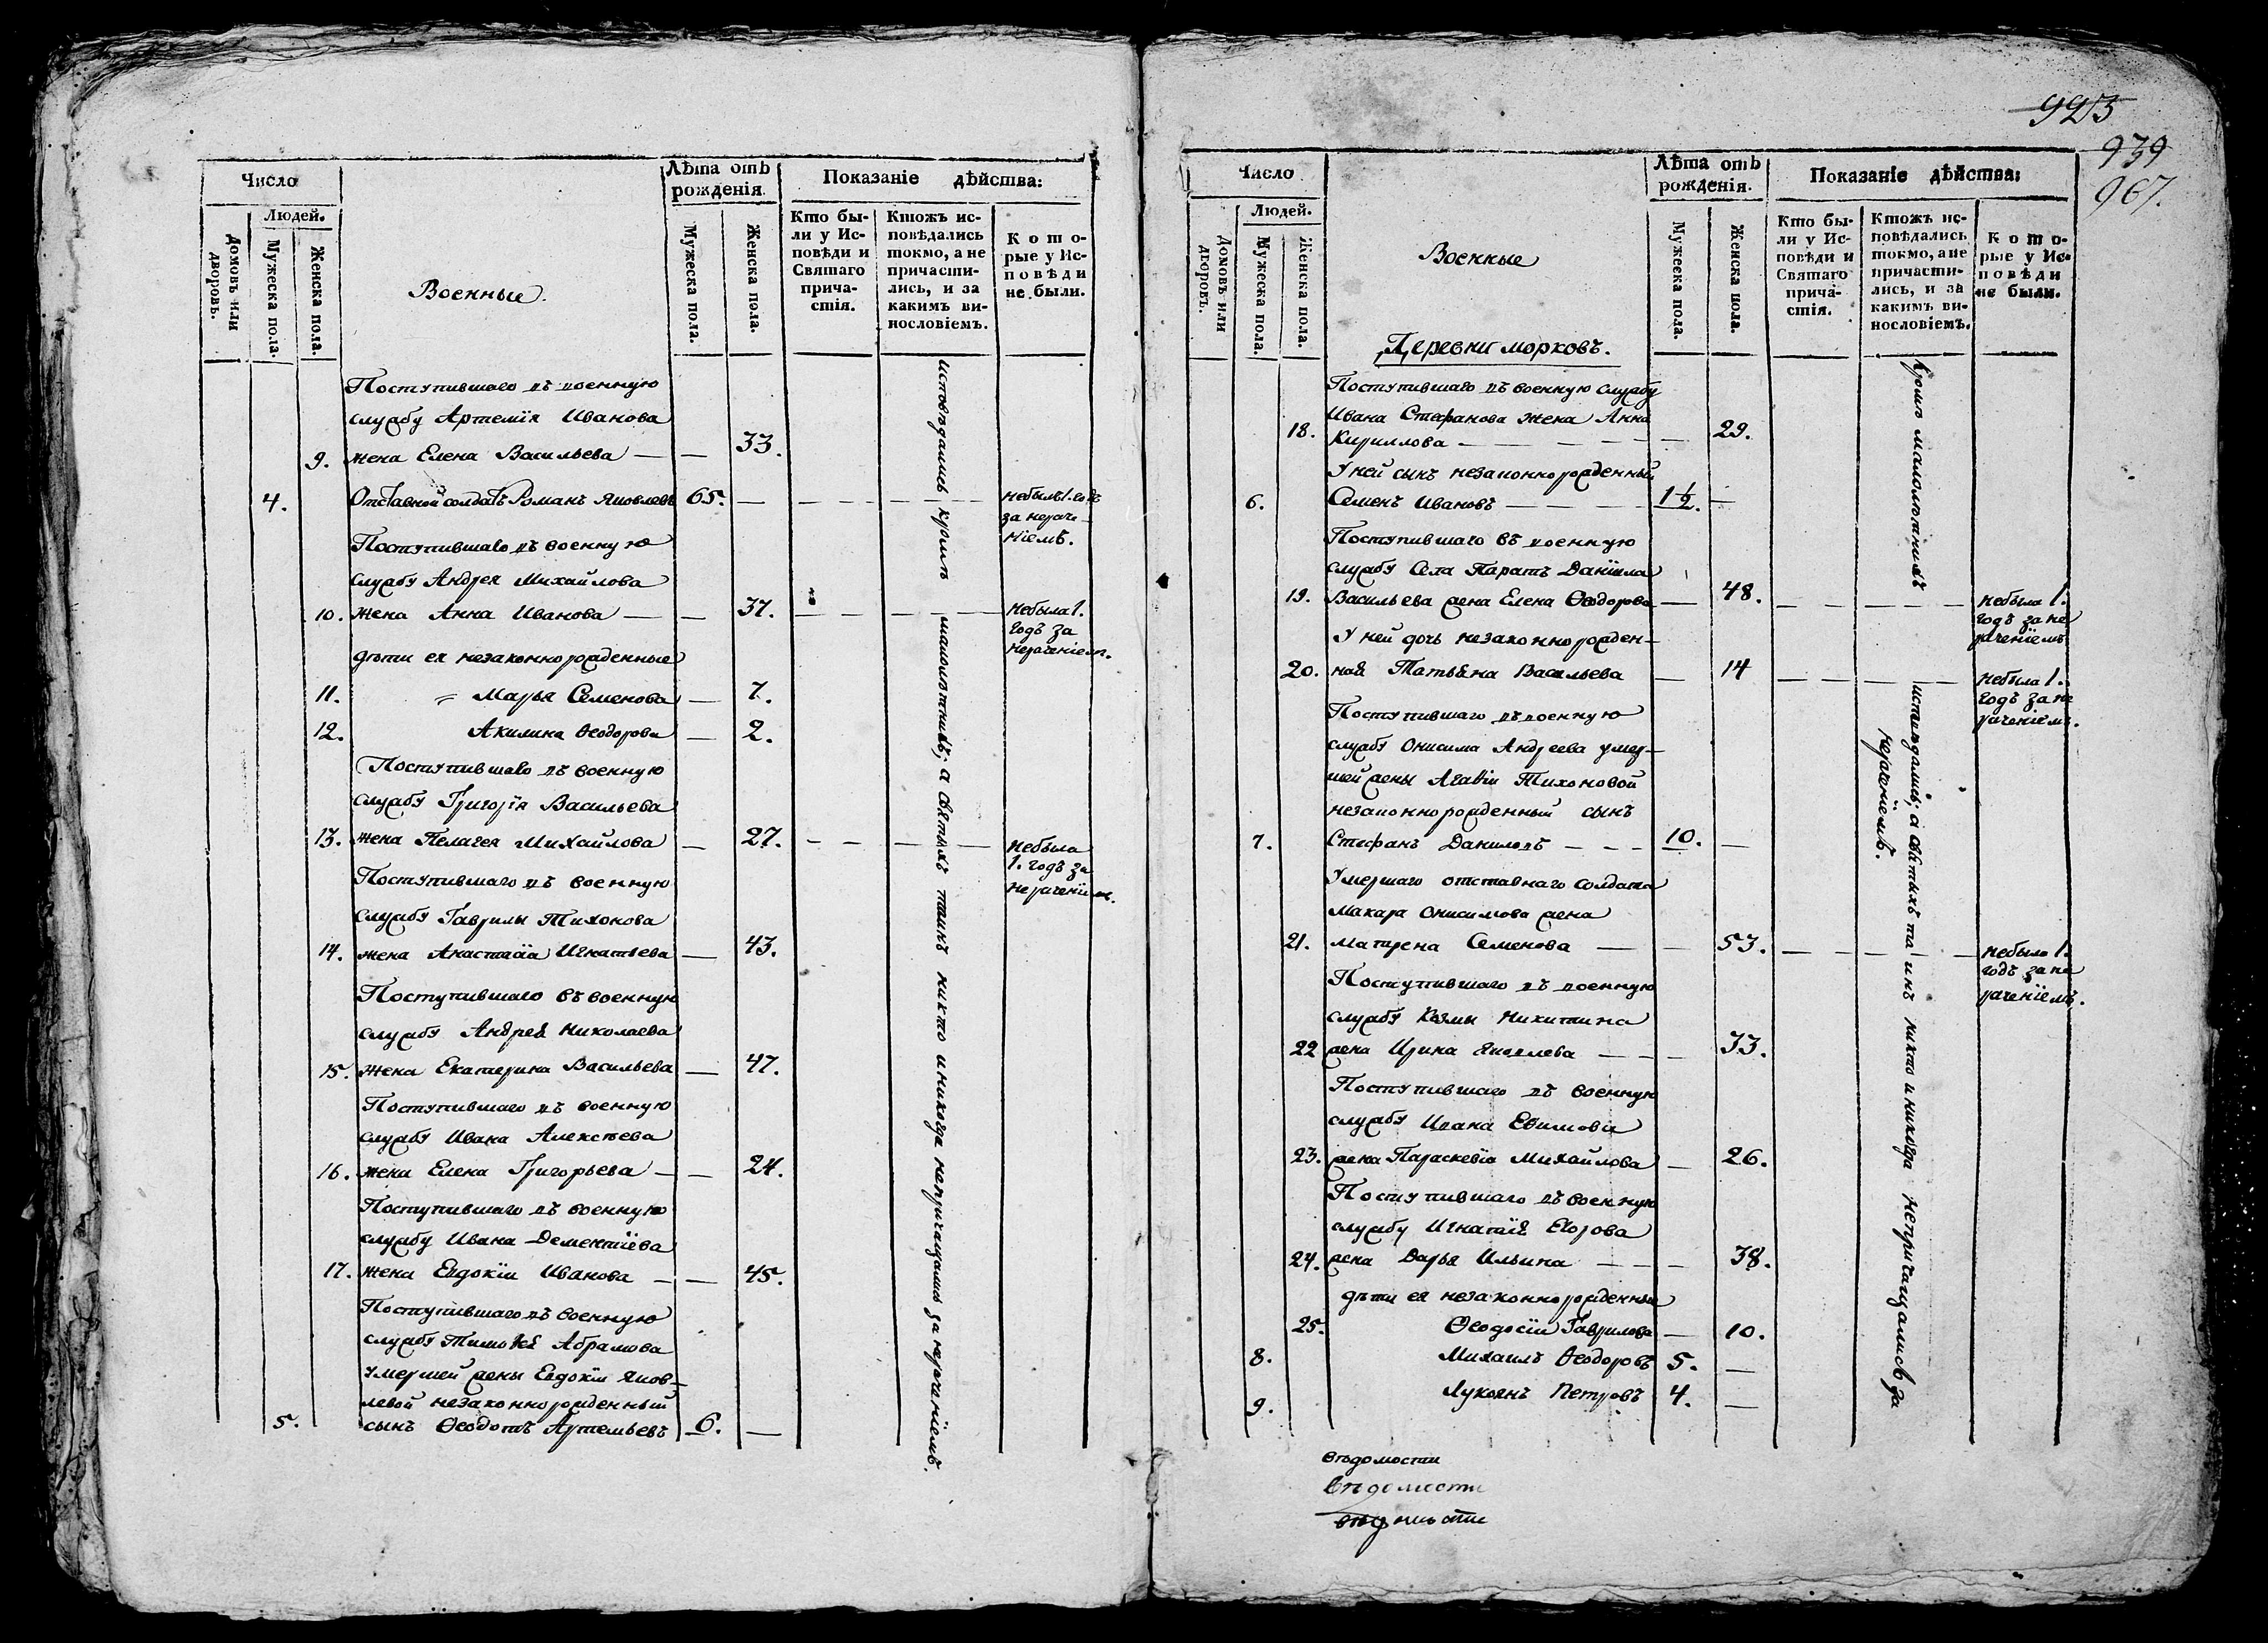 Число
Людей.
Домовъ или дворовъ.
Мужеска пола.
Женска пола.
Военные.
Лѣта отъ рожденія.
Мужеска пола.
Женска пола.
Показаніе дѣйства:
Кто бы-
ли у Ис-
повѣди и
Святаго
прича-
стія.
Ктожъ ис-
повѣдались
токмо, а не
причасти-
лись, и за
какимъ ви-
нословіемъ.
Кото-
рые у Ис-
повѣди
не были.
Поступившаго въ военную
службу Артемія Иванова
9. жена Елена Васильева — — 33.
4. Отставной солдатъ Романъ Яковлевъ 65. — небылъ 1. годъ
за нераче-
ніемъ.
Поступившаго въ военную
службу Андрея Михайлова
10. жена Анна Иванова — — 37. — небыла 1.
годъ за
нераченіемъ.
дѣти ея незаконнорожденные
11. Марья Семенова — 7.
12. Акилина Ѳеодорова — 2.
Поступившаго въ военную
службу Григорія Васильева
13. жена Пелагея Михайлова — 27. — небыла
1. годъ за
нераченіемъ.
Поступившаго въ военную
службу Гаврилы Тихонова
14. жена Анастасія Игнатьева — 43.
Поступившаго въ военную
службу Андрея Николаева
15. жена Екатерина Васильева — 47.
Поступившаго въ военную
службу Ивана Алексѣева
16. жена Елена Григорьева — — 24.
Поступившаго въ военную
службу Ивана Дементіева
17. жена Евдокія Иванова — — 45.
Поступившаго въ военную
службу Тимоѳея Абрамова
умершей жены Евдокіи Яков-
левой незаконнорожденный
5. сынъ Ѳеодотъ Артемьевъ 6. —
исповѣдались кромѣ малолѣтнихъ; а святыхъ таинъ никто и никогда непричащались за нераченіемъ.
923
939
967.
Число
Людей.
Домовъ или дворовъ.
Мужеска пола.
Женска пола.
Военные
Лѣта отъ рожденія.
Мужеска пола.
Женска пола.
Показаніе дѣйства:
Кто бы-
ли у Ис-
повѣди и
Святаго
прича-
стія.
Ктожъ ис-
повѣдались
токмо, а не
причасти-
лись, и за
какимъ ви-
нословіемъ.
Кото-
рые у Ис-
повѣди
не были.
Деревни морковъ.
Поступившаго въ военную службу
Ивана Стефанова жена Анна
18. Кириллова — — 29.
У ней сынъ незаконнорожденный
6. Семенъ Ивановъ — 1½. —
Поступившаго въ военную
службу Села Паратъ Даніила
19. Васильева жена Елена Ѳеодорова — 48. — небыла 1.
годъ за не
раченіемъ
У ней дочь незаконнорожден-
20. ная Татьяна Васильева — 14 — небыла 1.
годъ за не
раченіемъ.
Поступившаго въ военную
службу Онисима Андреева умер-
шей жены Агаѳіи Тихоновой
незаконнорожденный сынъ
7. Стефанъ Даниловъ — 10. —
Умершаго отставнаго солдата
Макара Онисимова жена
21. Матрена Семенова — — 53. — небыла 1.
годъ за не
раченіемъ.
Поступившаго въ военную
службу Козмы Никитина
22 жена Ирина Яковлева — — 33.
Поступившаго въ военную
службу Ивана Евимова
23. жена Параскевія Михайлова — 26.
Поступившаго въ военную
службу Игнатія Егорова
24. жена Дарья Ильина — — 38.
дѣти ея незаконнорожденные
25. Ѳеодосія Гаврилова — 10.
8. Михаилъ Ѳеодоровъ 5. —
9. Лукоянъ Петровъ 4. —
Кромѣ малолѣтнихъ исповѣдались; а святыхъ таинъ никто и никогда непричащались за
нераченіемъ.
вѣдомости
вѣдомости
вѣдомости